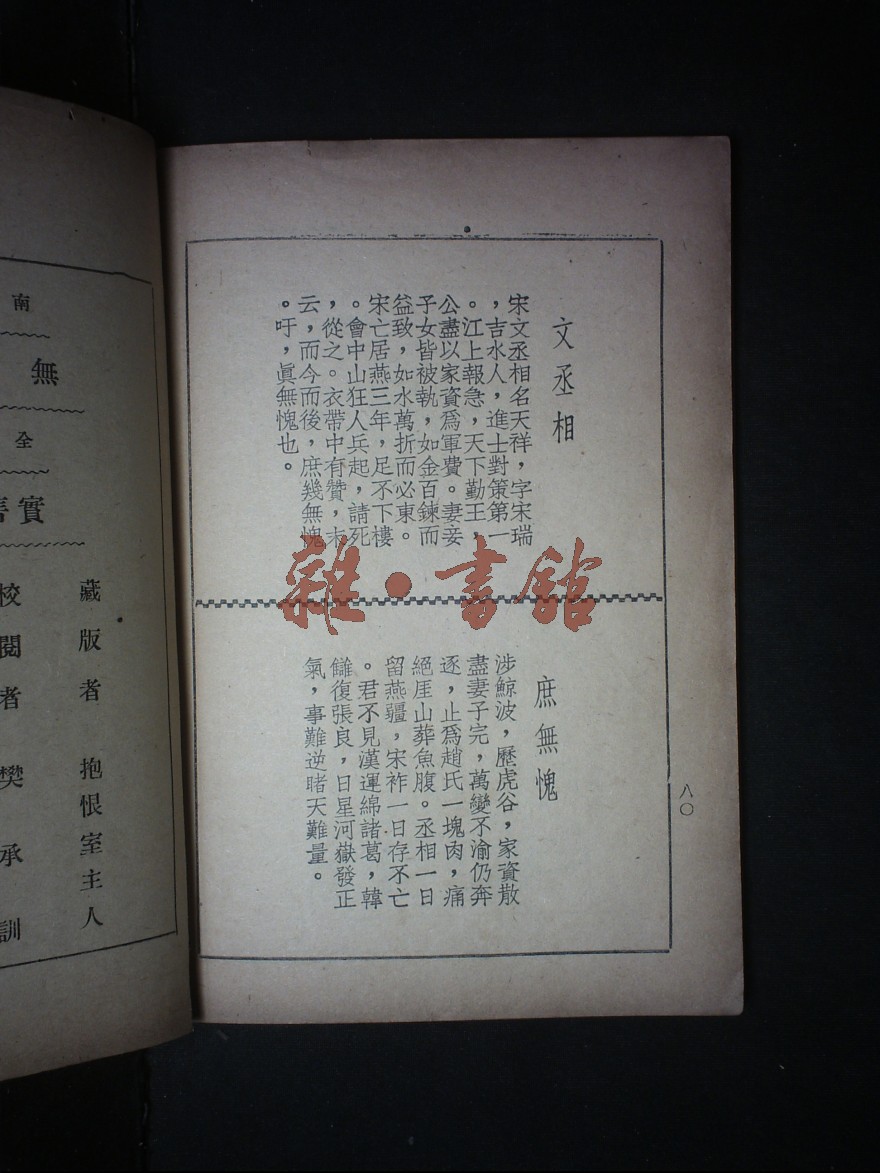 文丞相
宋文丞相名天祥，字宋瑞
，吉水人，進士對策第一
。江上報急，天下勤王，
公盡以家資爲軍費。妻妾
子女皆被執，如金百鍊而
益致，如水萬折而必東。
宋亡居燕三年，足不下樓
。會中山狂人兵起，請死
，從之。衣帶中有贊，末
云，而今而後，庶幾無愧
。吁，眞無愧也。
庶無愧
涉鯨波，歷虎谷，家資散
盡妻子完，萬變不渝仍奔
逐，止爲趙氏一塊肉，痛
絕厓山葬魚腹。丞相一日
留燕疆，宋祚一日存不亡
。君不見漢運綿諸葛，韓
讎復張良，日星河嶽發正
氣，事難逆睹天難量。
八〇
雜·書館
南
無
全
實
藏版者　抱恨室主人
校閱者　樊承訓